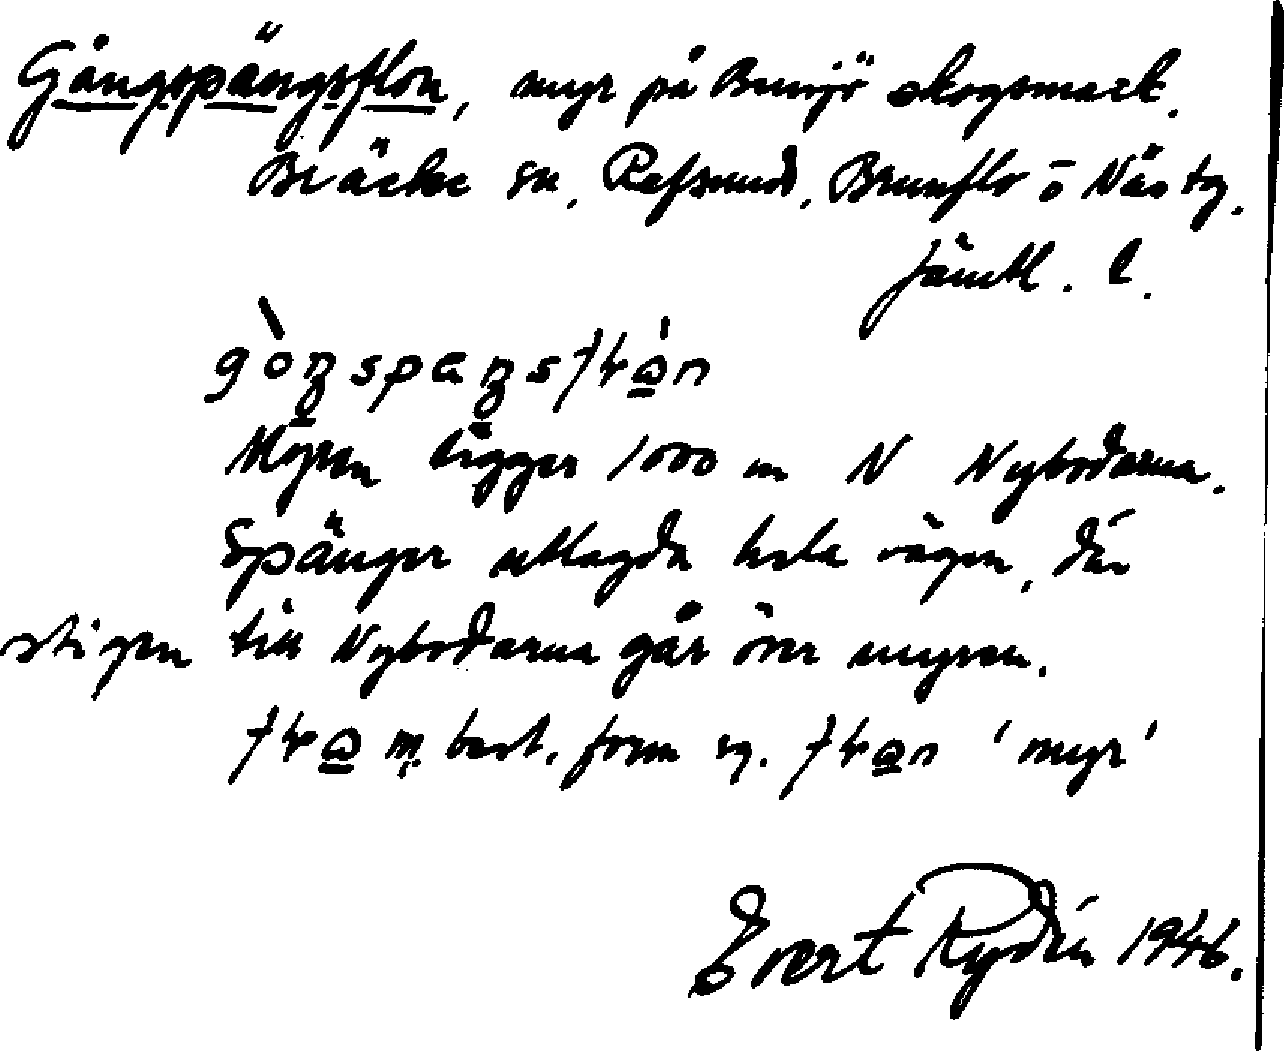 Gångspängsflon, myr på Bunsjö skogsmark.
Bräcke sn, Refsunds, Brunflo o Näs tg.
Jämtl. l.
gòŋspaŋsflo̠n
Myren ligger 1000 m N Nybodarna.
Spänger utlagda hela vägen, där
stigen till Nybodarna går över myren.
best. form sg. 'myr'
Evert Rydén 1946.